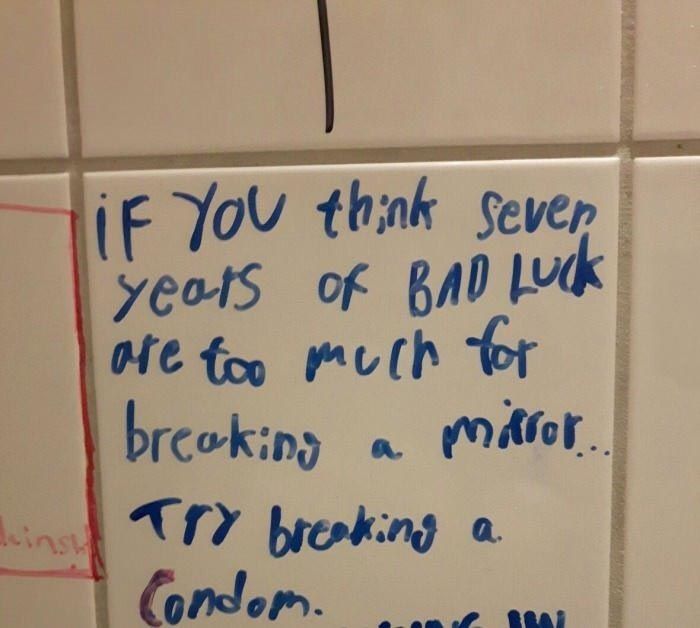 iF YOU think seven
years of BAD LUCk
are too much for
breaking a mirror...
TRY breaking a
Condom.